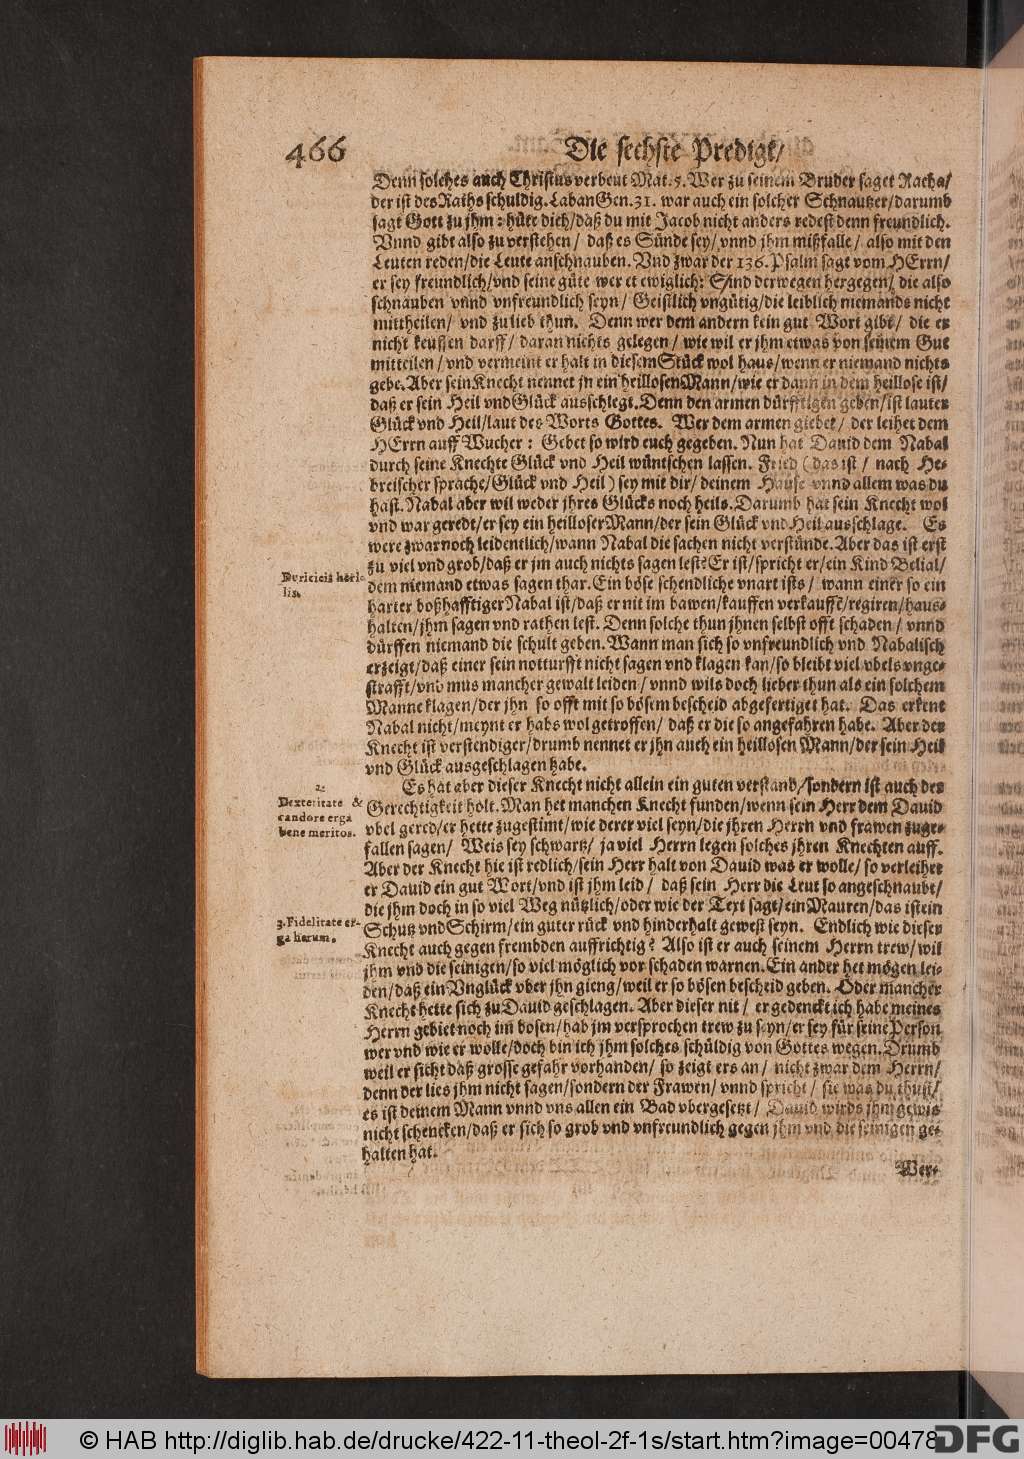 466
Die sechste Predigt/
Denn solches auch Christus verbeut Mat. 5. Wer zu seinem Bruder saget Racha/
der ist des Raths schuldig. Laban Gen. 31. war auch ein solcher Schnautzer/darumb
sagt Gott zu jhm: hüte dich/daß du mit Jacob nicht anders redest denn freundlich.
Vnnd gibt also zu verstehen/ daß es Sünde sey/vnnd jhm mißfalle/ also mit den
Leuten reden/die Leute anschnauben. Vnd zwar der 136. Psalm sagt vom HErrn/
er sey freundlich/vnd seine güte wer et ewiglich: Sind derwegen hergegen/ die also
schnauben vnnd vnfreundlich seyn/ Geistlich vngütig/die leiblich niemands nicht
mittheilen/ vnd zu lieb thun. Denn wer dem andern kein gut Wort gibt/ die er
nicht keuffen darff/ daran nichts gelegen/ wie wil er jhm etwas von seinem Gut
mitteilen/vnd vermeint er halt in diesem Stück wol haus/wenn er niemand nichts
gebe. Aber sein Knecht nennet jn ein heillosen Mann/wie er dann in dem heillose ist/
daß er sein Heil vnd Glück ausschlegt. Denn den armen dürfftigen geben/ist lauter
Glück vnd Heil/laut des Worts Gottes. Wer dem armen giebet/ der leihet dem
HErrn auff Wucher: Gebet so wird euch gegeben. Nun hat Dauid dem Nabal
durch seine Knechte Glück vnd Heil wüntschen lassen. Fried (das ist/ nach He-
breischer sprache/Glück vnd Heil) sey mit dir/ deinem Hause vnnd allem was du
hast. Nabal aber wil weder jhres Glücks noch heils. Darumb hat sein Knecht wol
vnd war geredt/er sey ein heilloser Mann/der sein Glück vnd Heil ausschlage. Es
were zwar noch leidentlich/wann Nabal die sachen nicht verstünde. Aber das ist erst
zu viel vnd grob/daß er jm auch nichts sagen lest: Er ist/spricht er/ein Kind Belial/
dem niemand etwas sagen thar. Ein böse schendliche vnart ists/ wann einer so ein
harter boßhafftiger Nabal ist/daß er nit im bawen/kauffen verkauffē/regiren/haus-
halten/jhm sagen vnd rathen lest. Denn solche thun jhnen selbst offt schaden/ vnnd
dürffen niemand die schult geben. Wann man sich so vnfreundlich vnd Nabalisch
erzeigt/daß einer sein notturfft nicht sagen vnd klagen kan/so bleibt viel vbels vnge-
strafft/vnd mus mancher gewalt leiden/ vnnd wils doch lieber thun als ein solchem
Manne klagen/der jhn so offt mit so bösem bescheid abgefertiget hat. Das erkent
Nabal nicht/meynt er habs wol getroffen/ daß er die so angefahren habe. Aber der
Knecht ist verstendiger/drumb nennet er jhn auch ein heillosen Mann/der sein Heil
vnd Glück ausgeschlagen habe.
heri-
lis.
2.
Dexteritate &
candore erga
bene meritos.
Es hat aber dieser Knecht nicht allein ein guten verstand/sondern ist auch der
Gerechtigkeit holt. Man het manchen Knecht funden/wenn sein Herr dem Dauid
vbel gered/er hette zugestimt/wie derer viel seyn/die jhren Herrn vnd frawen zuge-
fallen sagen/ Weis sey schwartz/ ja viel Herrn legen solches jhren Knechten auff.
Aber der Knecht hie ist redlich/sein Herr halt von Dauid was er wolle/ so verleihet
er Dauid ein gut Wort/vnd ist jhm leid/ daß sein Herr die Leut so angeschnaubt/
die jhm doch in so viel Weg nützlich/oder wie der Text sagt/ein Mauren/das ist ein
Schutz vnd Schirm/ein guter rück vnd hinderhalt gewest seyn. Endlich wie dieser
3. Fidelitate er-
ga herum.
Knecht auch gegen frembden auffrichtig? Also ist er auch seinem Herrn trew/wil
jhm vnd die seinigen/so viel möglich vor schaden warnen. Ein ander het mögen lei-
den/daß ein Vnglück vber jhn gieng/weil er so bösen bescheid geben. Oder mancher
Knecht hette sich zu Dauid geschlagen. Aber dieser nit/ er gedenckt ich habe meines
Herrn gebiet noch im bosen/hab jm versprochen trew zu seyn/er sey für seine Person
wer vnd wie er wolle/doch bin ich jhm solches schüldig von Gottes wegen. Drumb
weil er sicht daß grosse gefahr vorhanden/ so zeigt ers an/ nicht zwar dem Herrn/
denn der lies jhm nicht sagen/sondern der Frawen/ vnnd spricht/ sie was du thust/
es ist deinem Mann vnnd vns allen ein Bad vbergesetzt/ Dauid wirds jhm gewis
nicht schencken/daß er sich so grob vnd vnfreundlich gegen jhm vnd die seinigen ge-
halten hat.
Wer-
© HAB http://diglib.hab.de/drucke/422-11-theol-2f-1s/start.htm?image=00478
DFG